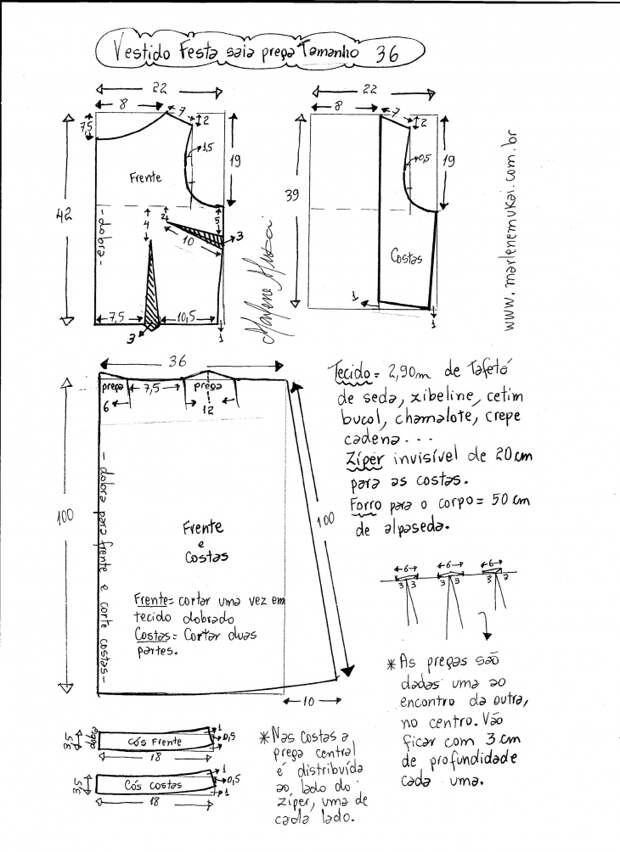 Vestido Festa saia prega Tamanho 36
22
8
7
2
7,5
1,5
19
Frente
42
- dobra -
4
2
5
3
10
7,5
10,5
3
1
Marlene Mukai
22
8
7
2
0,5
19
39
Costas
1
1
www.marlenemukai.com.br
36
prega
7,5
prega
6
12
100
100
- dobra para frente e corte costas -
Frente
e
Costas
Frente = cortar uma vez em
tecido dobrado
Costas = Cortar duas
partes.
10
Tecido = 2,90m de Tafetá
de seda, xibeline, cetim
bucol, chamalote, crepe
cadena...
Zíper invisível de 20cm
para as costas.
Forro para o corpo = 50cm
de alpaseda.
6
6
6
3
3
3
3
* As pregas são
dadas uma ao
encontro da outra,
no centro. Vão
ficar com 3cm
de profundidade
cada uma.
3,5
dobra
Cós Frente
1
0,5
1
18
3,5
Cós costas
1
0,5
1
18
* Nas Costas a
prega central
é distribuída
ao lado do
zíper, uma de
cada lado.